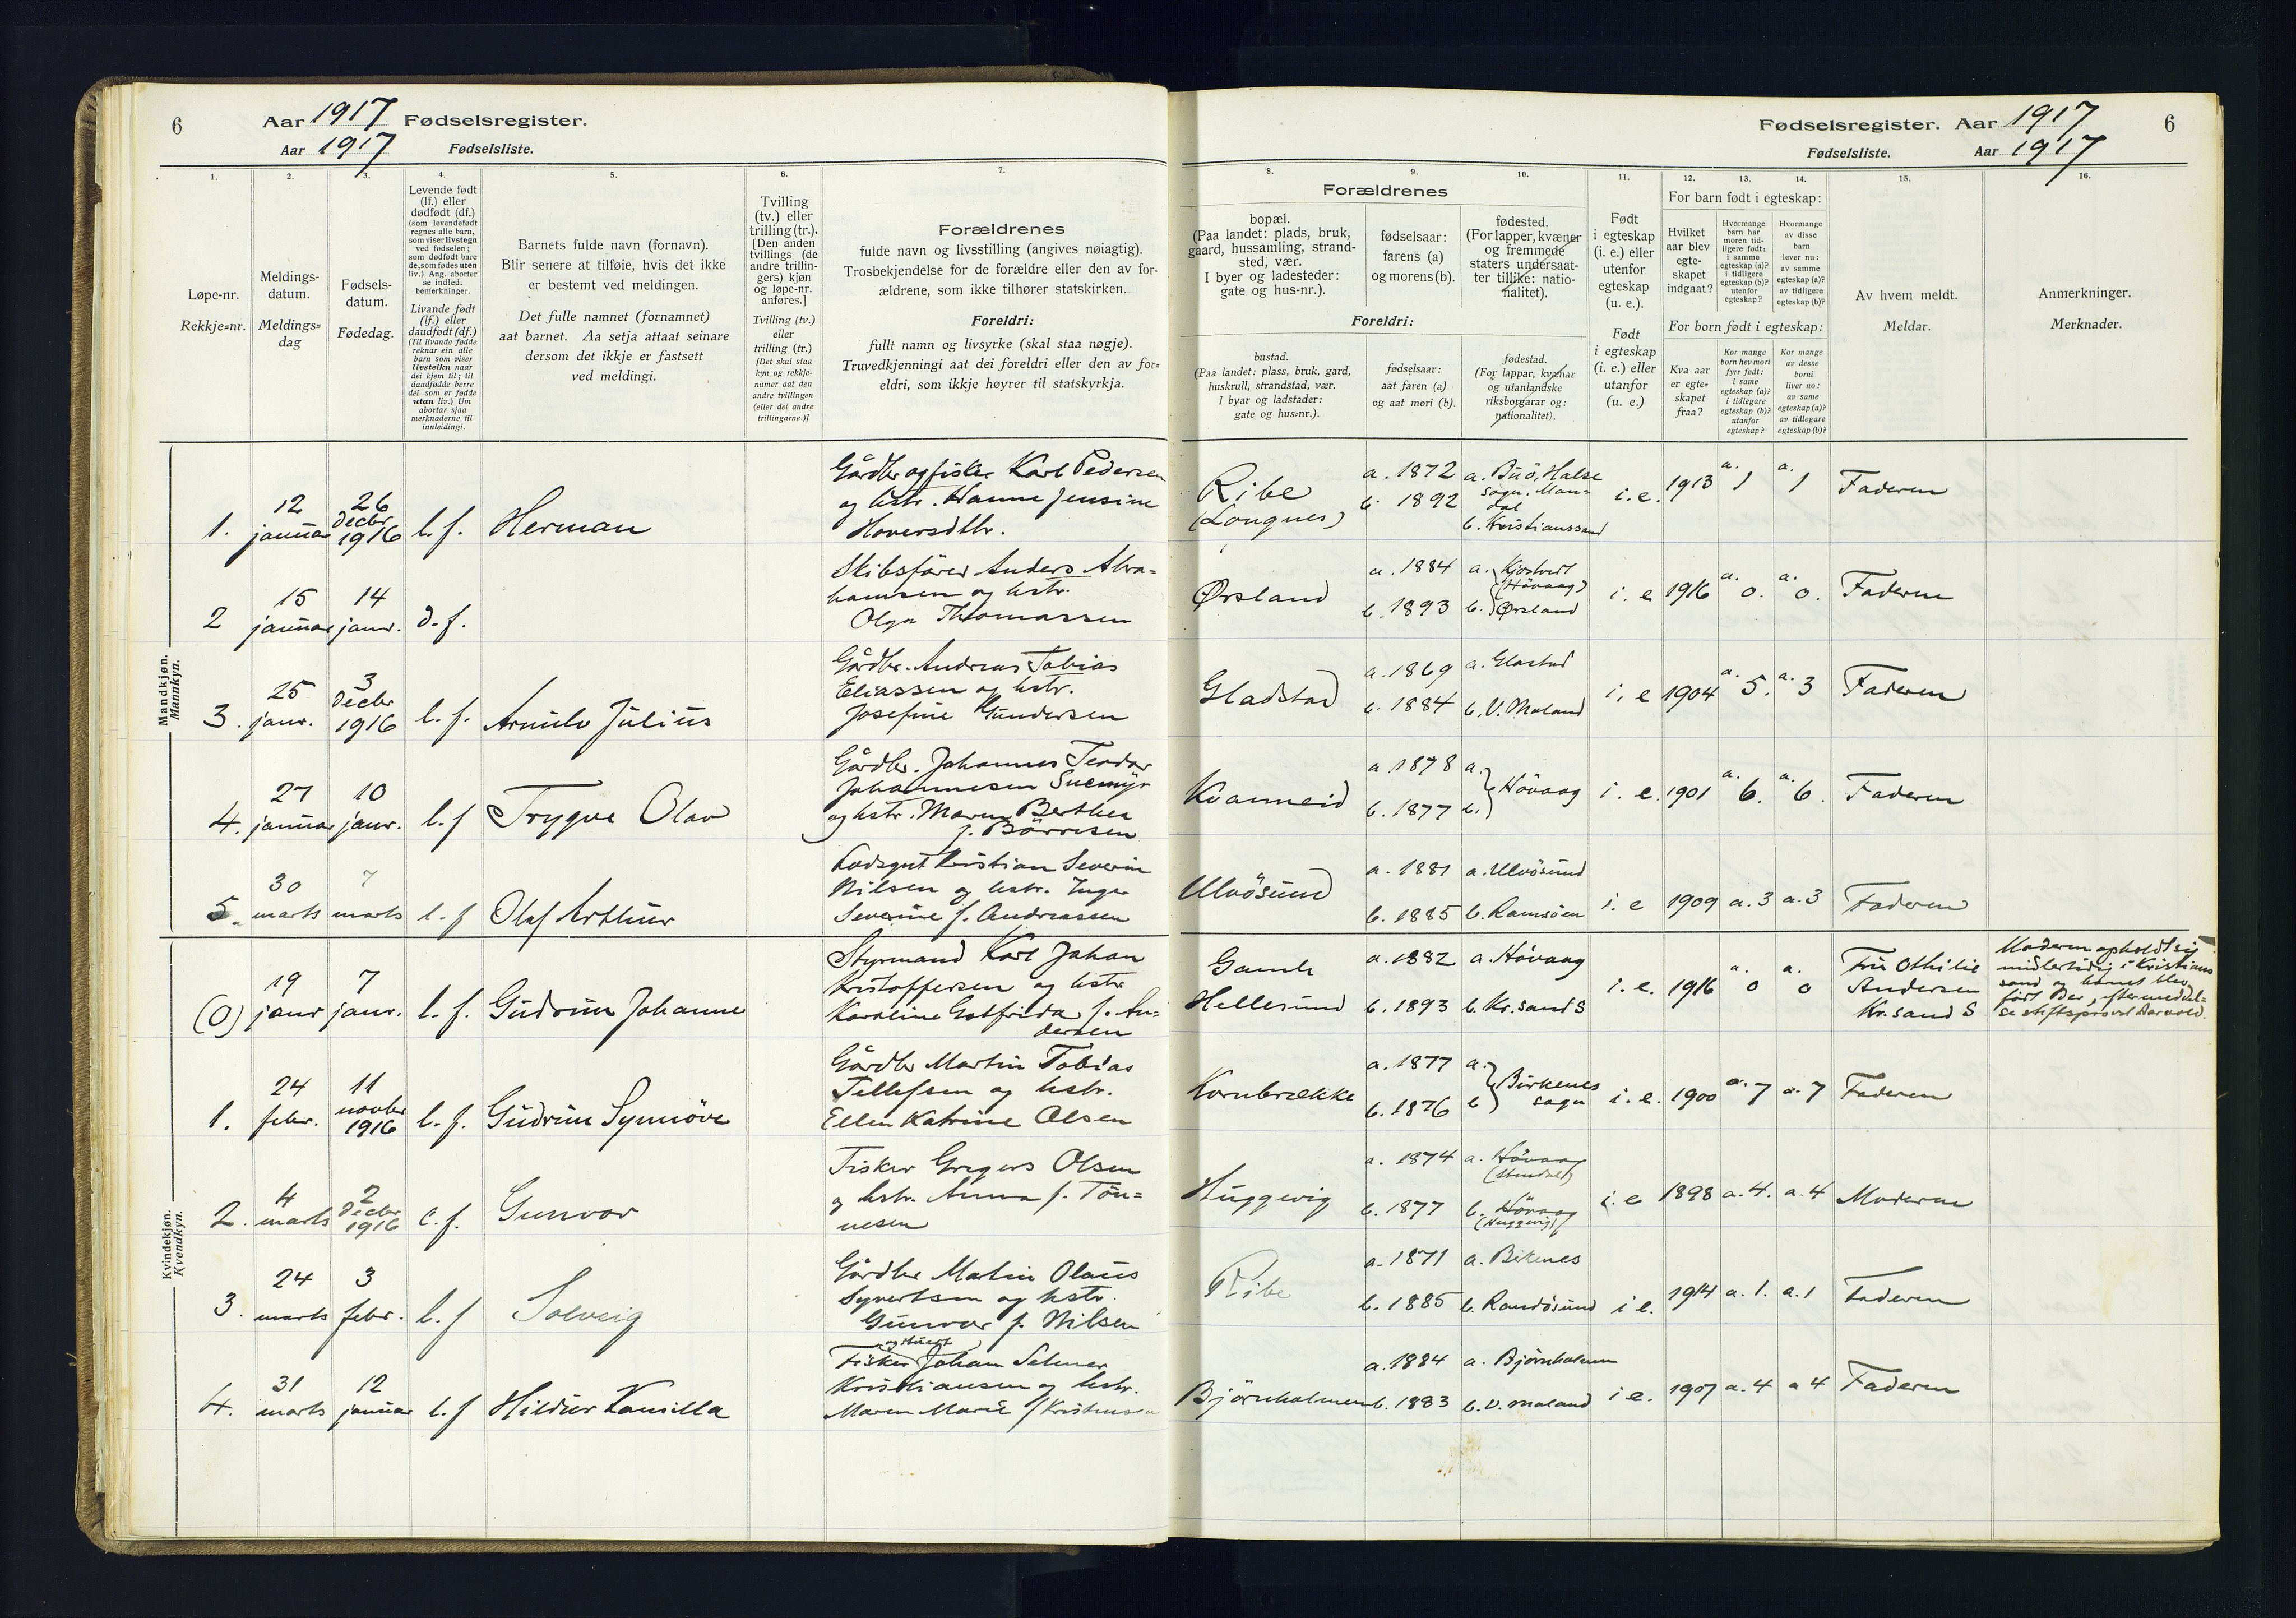 6 Aar 1917 Fødselsregister.
Aar 1917 Fødselsliste.
1. 2. 3. 4. 5. 6. 7.
Løpe-nr.
Rekkje=nr.
Meldings-
datum.
Meldings=
dag
Fødsels-
datum.
Fødedag.
Levende født
(lf.) eller
dødfødt (df.)
(som levendefødt
regnes alle barn,
som viser livstegn
ved fødselen;
som dødfødt bare
de, som fødes uten
liv.) Ang. aborter
se indled.
bemerkninger.
Livande fødd
(lf.) eller
daudfødt (df.)
(Til livande fødde
reknar ein alle
barn som viser
livsteikn naar
dei kjem til; til
daudfødde berre
dei som er fødde
utan liv.) Um
abortar sjaa
merknaderne til
innleidingi.
Barnets fulde navn (fornavn).
Blir senere at tilføie, hvis det ikke
er bestemt ved meldingen.
Det fulle namnet (fornamnet)
aat barnet. Aa setja attaat seinare
dersom det ikkje er fastsett
ved meldingi.
Tvilling
(tv.) eller
trilling (tr.).
[Den anden
tvillings (de
andre trillin-
gers) kjøn
og løpe-nr.
anføres.]
Tvilling (tv.)
eller
trilling (tr.)
[Det skal staa
kyn og rekkje-
numer aat den
andre tvillingen
(eller dei andre
trillingarne.)]
Forældrenes
fulde navn og livsstilling (angives nøiagtig).
Trosbekjendelse for de forældre eller den av for-
ældrene, som ikke tilhører statskirken.
Foreldri:
fullt namn og livsyrke (skal staa nøgje).
Truvedkjenningi aat dei foreldri eller den av for=
eldri, som ikkje høyrer til statskyrkja.
Mandkjøn.
Mannkyn.
1. 12 januar 26 Decbr 1916 l. f. Herman
Gårdbr og fisker Karl Pedersen
og hstr. Hanne Jensine
2 15 januar 14 janr. d. f.
Skibsfører Anders Abra=
hamsen og hstr.
Olga Thomassen
3. 25 janr. 3 Decbr 1916 l. f. Julius
Gårdbr. Andreas Tobias
Eliassen og hstr.
Josefine Gundersen
4. 27 januar 10 janr. l. f Trygve Olav
Gårdbr. Johannes Teodor
Johannesen
og hstr. Maren Berthea
f. Børresen
5. 30 marts 7 marts l. f Olaf Arthur
Kristian Severin
Nilsen og hstr. Inger
Severine f. Andreassen
Kvindekjøn.
Kvendkyn.
(0) 19 janr 7 janr. l. f. Gudrun Johanne
Styrmand Karl Johan
Kristoffersen og hstr
Karoline Gotfrida f. An=
dersen
1. 24 febr. 11 novbr 1916 l. f. Gudrun Synnöve
Gårdbr Martin Tobias
Tellefsen og hstr.
Ellen Katrine Olsen
2. 4 marts 2 Decbr 1916 l. f. Gunvor
Fisker Gregers Olsen
og hstr. Anna f. Tön=
nesen
3. 24 marts 3 febr. l. f Solveig
Gårdbr Martin Olaus
Syvertsen og hstr.
Gunvor f. Nilsen
4. 31 marts 12 januar l. f Hildur Kamilla
Fisker Johan Selmer
Kristiansen og hstr.
Maren Marie f Kristensen
Fødselsregister. Aar 1917 6
Fødselsliste. Aar 1917
8. 9. 10. 11. 12. 13. 14. 15. 16.
Forældrenes
bopæl.
(Paa landet: plads, bruk,
gaard, hussamling, strand-
sted, vær.
I byer og ladesteder:
gate og hus-nr.).
fødselsaar:
farens (a)
og morens (b).
fødested.
(For lapper, kvæner
og fremmede
staters undersaat-
ter tillike: natio-
nalitet).
Foreldri:
bustad.
(Paa landet: plass, bruk, gard,
huskrull, strandstad, vær.
I byar og ladstader:
gate og hus=nr.).
fødselsaar:
aat faren (a)
og aat mori (b).
fødestad.
(For lappar, kvænar
og utanlandske
riksborgarar og:
nationalitet).
Født
i egteskap
(i. e.) eller
utenfor
egteskap
(u. e.).
Født
i egteskap
(i. e.) eller
utanfor
(u. e.)
For barn født i egteskap:
Hvilket
aar blev
egte-
skapet
indgaat?
Hvormange
barn har
moren tid-
ligere født:
i samme
egteskap (a)?
i tidligere
egteskap (b)?
utenfor
egteskap?
Hvormange
av disse
barn
lever nu:
av samme
egteskap (a)?
av tidligere
egteskap (b)?
For born født i egteskap:
Kva aar
er egte=
skapet
fraa?
Kor mange
born hev mori
fyrr født:
i same
egteskap (a)?
i tidlegare
egteskap (b)?
utanfor
egteskap?
Kor mange
av desse
borni
liver no:
av same
egteskap (a)?
av tidlegare
egteskap (b)?
Av hvem meldt.
Meldar.
Anmerkninger.
Merknader.
Ribe a. 1872 a. Buö, Halse
sogn. Man=
dal
b. 1892 b. Kristianssand i. e. 1913 a. 1 a. 1 Faderen
Ørsland a. 1884 a. Kjöstvedt
(Hövaag)
b. 1893 b. Ørsland i. e 1916 a. 0. a. 0. Faderen
Gladstad a. 1869 a. Glastad
b. 1884 b. V. Moland i. e 1904 a. 5. a. 3 Faderen
Kvanneid a. 1878 a.
b. 1877 b. Hövaag i. e. 1901 a. 6. a. 6. Faderen
Ulvösund a. 1881 a. Ulvösund
b. 1885 b. Ramsöen i. e 1909 a. 3 a. 3 Faderen
Gamle
Hellesund a. 1882 a. Hövaag
b. 1893 b. Kr. sand S i. e. 1916 a. 0 a. 0 Fru Othilie
Andersen
Kr. sand S
Moderen opholdt sig
midlertidig i Kristians
sand og barnet blev
födt der, efter meddel=
se stiftsprovst
Kornbrække a. 1877 a.
b. 1876 b Birkenes
sogn i. e. 1900 a. 7 a. 7 Faderen
Huggevig a. 1874 a. Hövaag
b. 1877 b. Hövaag
(Huggevig) i. e 1898 a. 4. a. 4 Moderen
Ribe a. 1871 a. Birkenes
b. 1885 b. Randösund i e. 1914 a. 1. a. 1 Faderen
Björnholmen a. 1884 a. Björnholmen
b. 1883 b. V. Moland i e. 1907 a. 4 a 4 Faderen